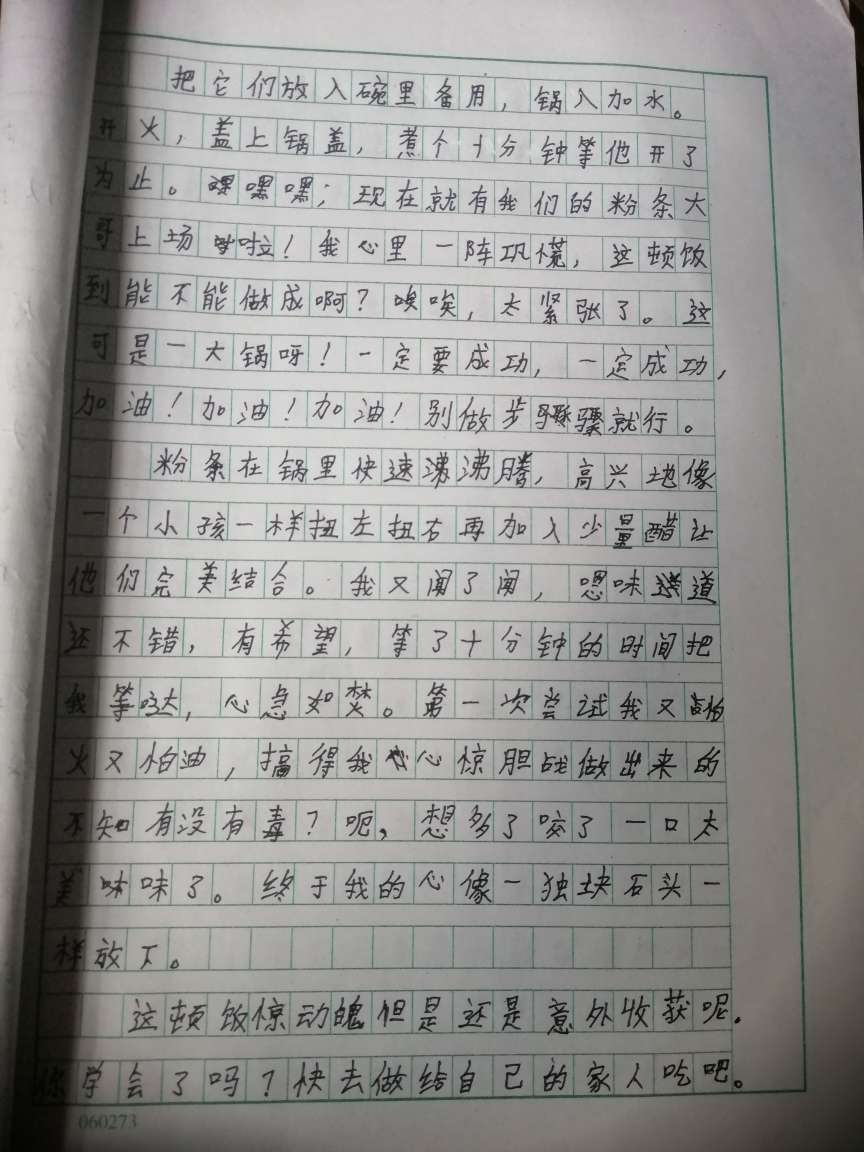 把它们放入碗里备用，锅入加水。
开火，盖上锅盖，煮个十分钟等他开了
为止。嘿嘿嘿；现在就有我们的粉条大
哥上场啦！我心里一阵巩慌，这顿饭
到能不能做成啊？唉唉，太紧张了。这
可是一大锅呀！一定要成功，一定成功，
加油！加油！加油！别做步骤就行。
粉条在锅里快速沸沸腾，高兴地像
一个小孩一样扭左扭右再加入少量醋让
他们完美结合。我又闻了闻，嗯味道
还不错，有希望，等了十分钟的时间把
我等哒，心急如焚。第一次尝试我又怕
火又怕油，搞得我心惊胆战做出来的
不知有没有毒？呃，想多了咬了一口太
美味味了。终于我的心像一独块石头一
样放下。
这顿饭惊动魄但是还是意外收获呢.
你学会了吗？快去做给自己的家人吃吧。
060273